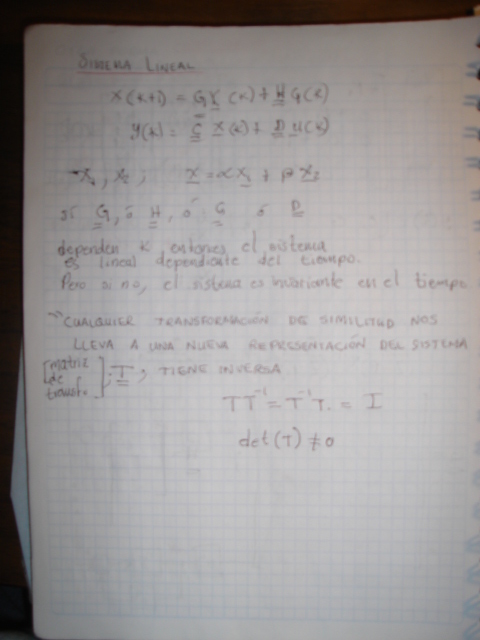 SISTEMA LINEAL
X(k+1) = G X(k) + H G(k)
y(k) = C X(k) + D u(k)
X₁, X₂ ; X = αX₁ + βX₂
si G, ó H, ó C ó D
dependen k entonces el sistema
es lineal dependiente del tiempo.
Pero si no, el sistema es invariante en el tiempo
"CUALQUIER TRANSFORMACIÓN DE SIMILITUD NOS
LLEVA A UNA NUEVA REPRESENTACIÓN DEL SISTEMA
[matriz de transfo.] : T ; TIENE INVERSA
T T⁻¹ = T⁻¹ T = I
det(T) ≠ 0